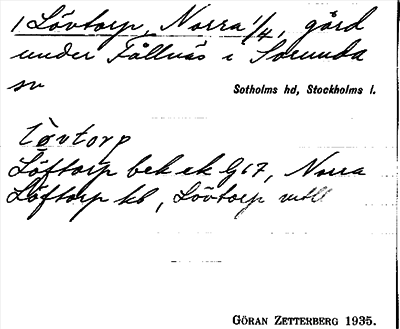 1 Lövtorp, Norra 1/4, gård
under Fållnäs i Sorunda
sn
Sotholms hd, Stockholms l.
Lövtorp
Löftorp bek ek G17, Norra
Löftorp kb, Lövtorp
GÖRAN ZETTERBERG 1935.